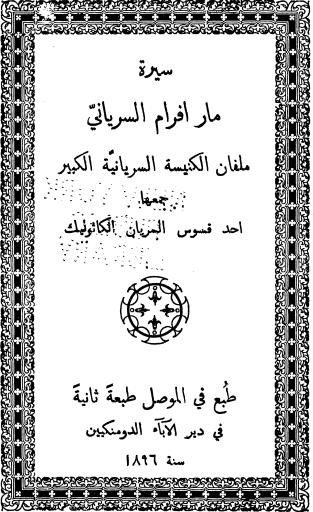 سيرة
مار افرام السريانيّ
ملفان الكنيسة السريانيَّة الكبير
جمعها
احد قسوس السريان الكاثوليك
طُبع في الموصل طبعةً ثانيةً
في دير الآباء الدومنكيين
سنة ١٨٩٦